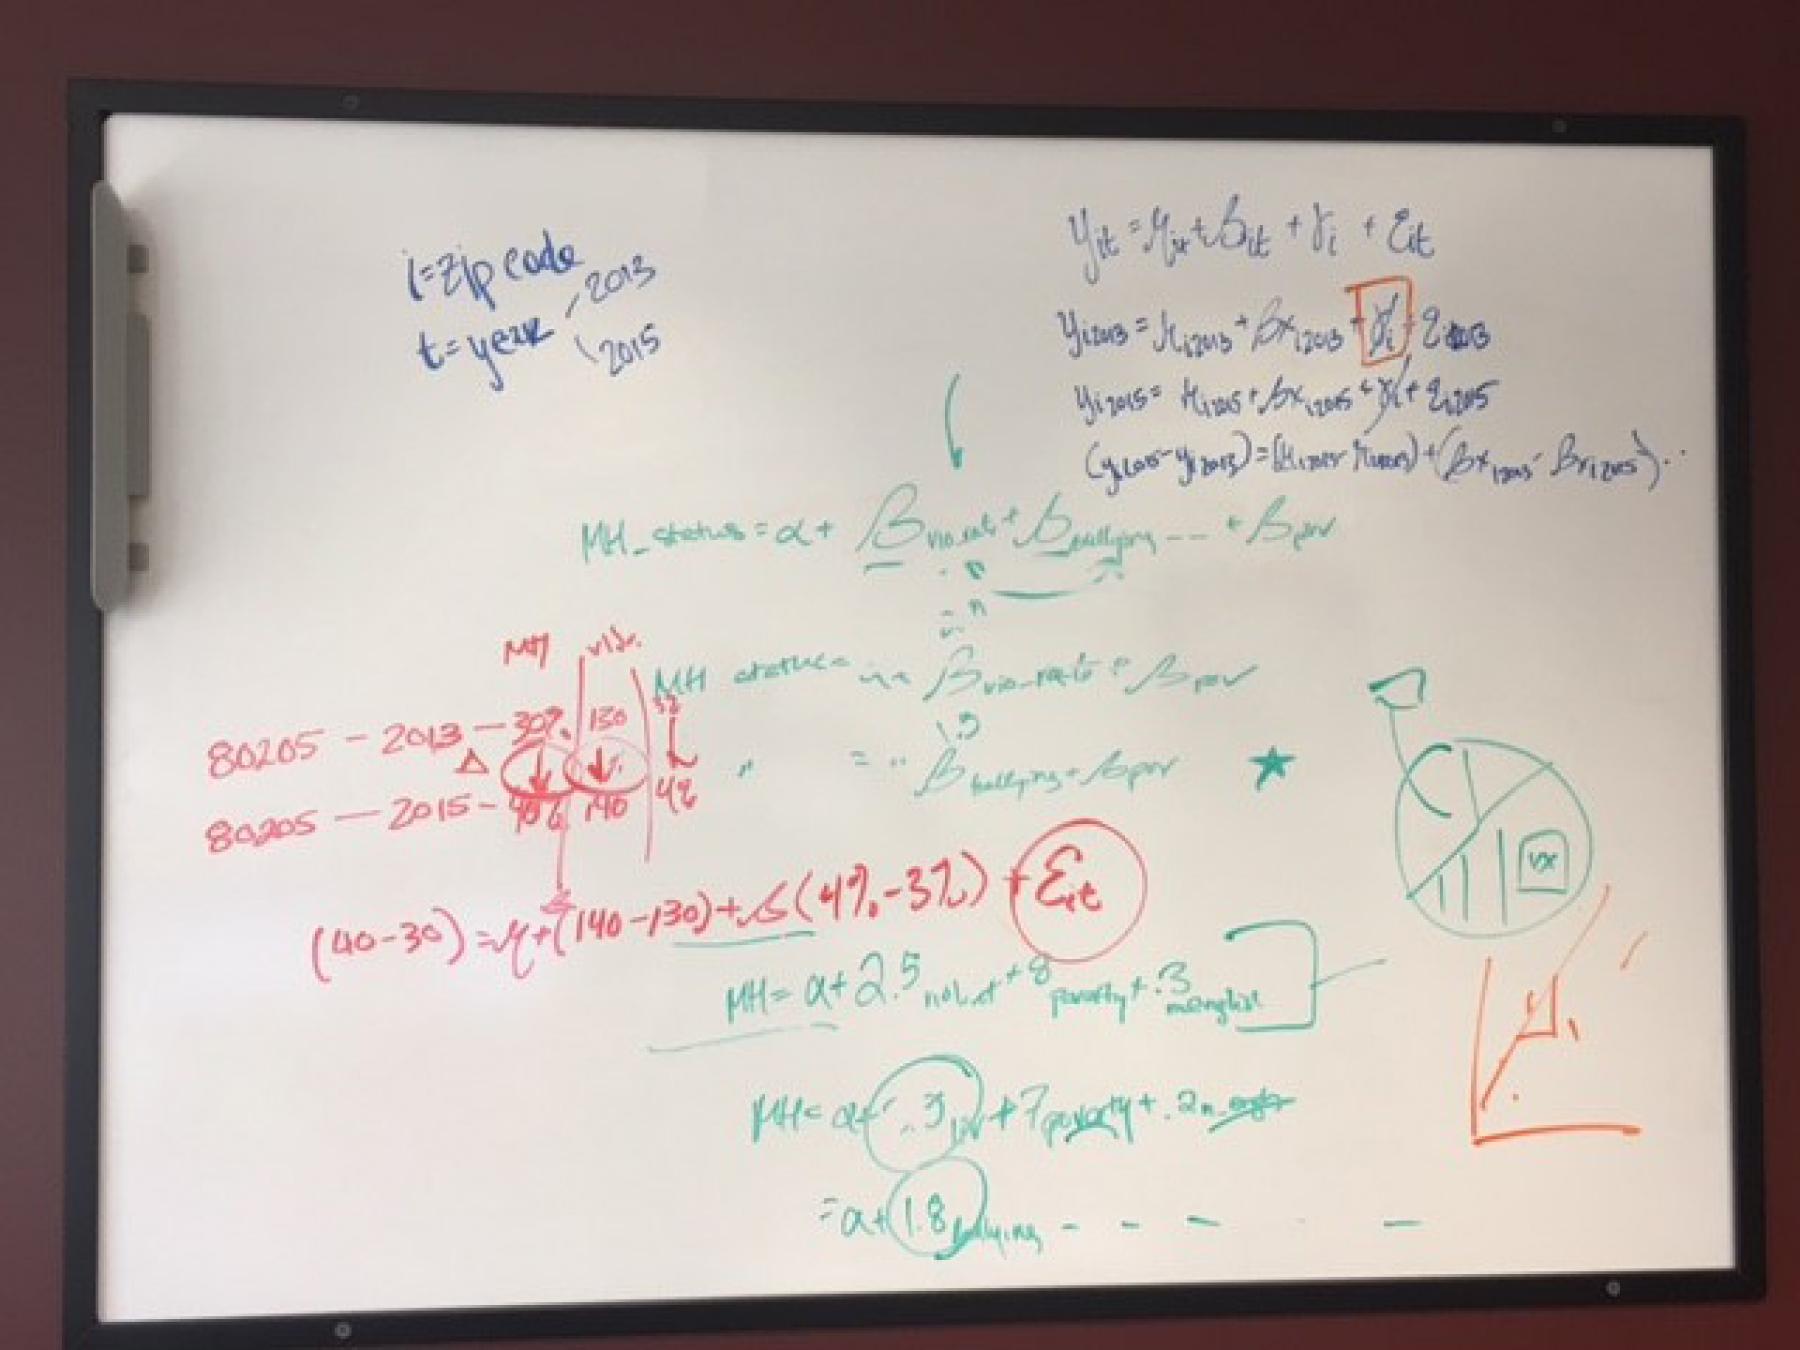 i=zip code
t=year 2013
2015
yit = μit + βit + γi + εit
yi2013 = μi2013 + βxi2013 + γi + εi2013
yi2015 = μi2015 + βxi2015 + γi + εi2015
(yi2015 - yi2013) = (μi2015 - μi2013) + (βxi2013 - βxi2015) ..
MH_status = α + βvio.rat + βbullying -- + βpov
MH status = βvio-rate + βpov
1.3
" = .. βbullying + βpov
MH
80205 - 2013 - 30% 130
Δ
80205 - 2015 - 40% 140 4%
(40-30) = μ + (140-130) + β(4%-3%) + εit
VX
MH = α + 2.5 + 8 poverty + .3
MH = α .3 + 7 poverty + .2
= α + 1.8 bullying - - - - -